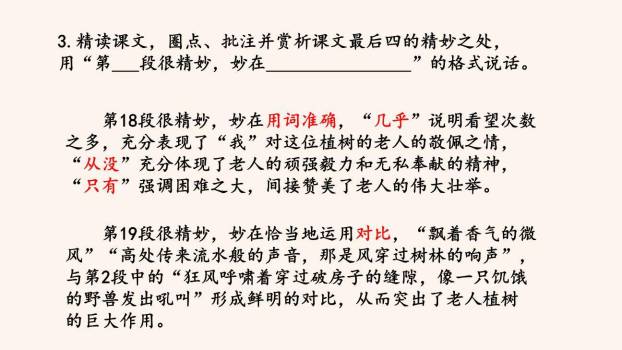 3.精读课文，圈点、批注并赏析课文最后四的精妙之处，
用“第___段很精妙，妙在________________”的格式说话。
第18段很精妙，妙在用词准确，“几乎”说明看望次数
之多，充分表现了“我”对这位植树的老人的敬佩之情，
“从没”充分体现了老人的顽强毅力和无私奉献的精神，
“只有”强调困难之大，间接赞美了老人的伟大壮举。
第19段很精妙，妙在恰当地运用对比，“飘着香气的微
风”“高处传来流水般的声音，那是风穿过树林的响声”，
与第2段中的“狂风呼啸着穿过破房子的缝隙，像一只饥饿
的野兽发出吼叫”形成鲜明的对比，从而突出了老人植树
的巨大作用。